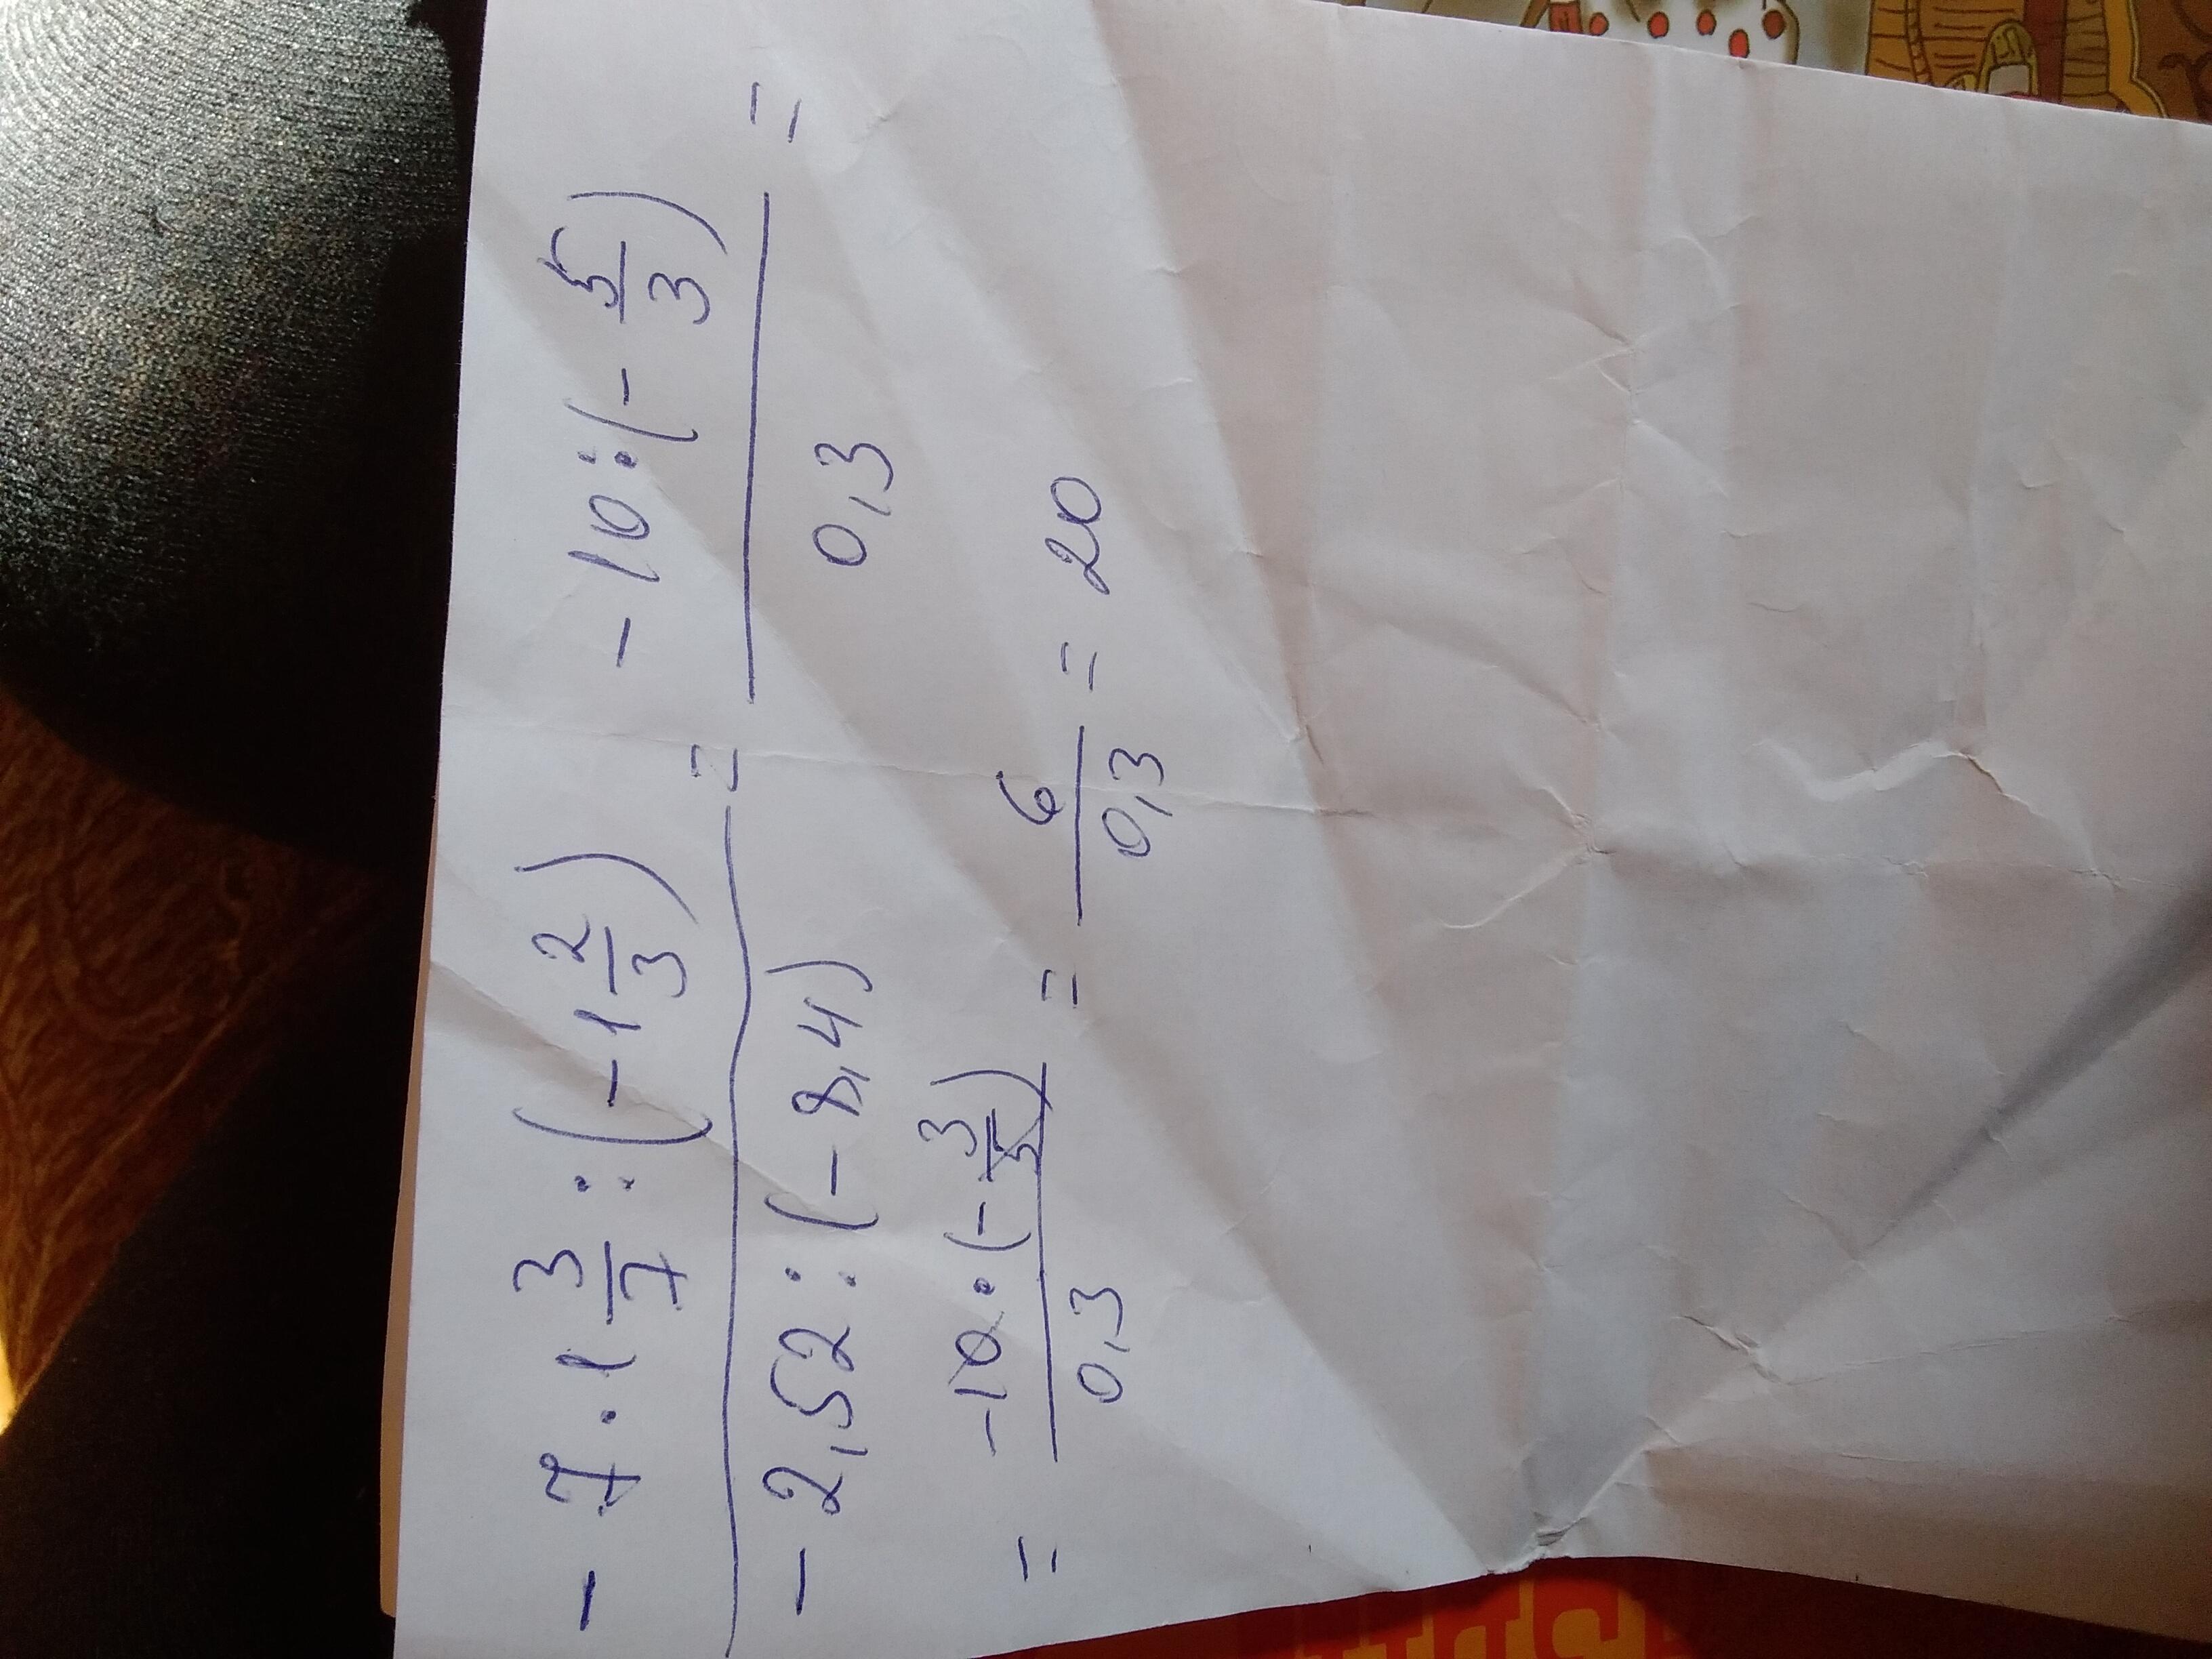 -7·1 3/7 : (-1 2/3) / -2,52 : (-8,4) = -10 : (-5/3) / 0,3 =
= -10 : (-3/5) / 0,3 = 6 / 0,3 = 20